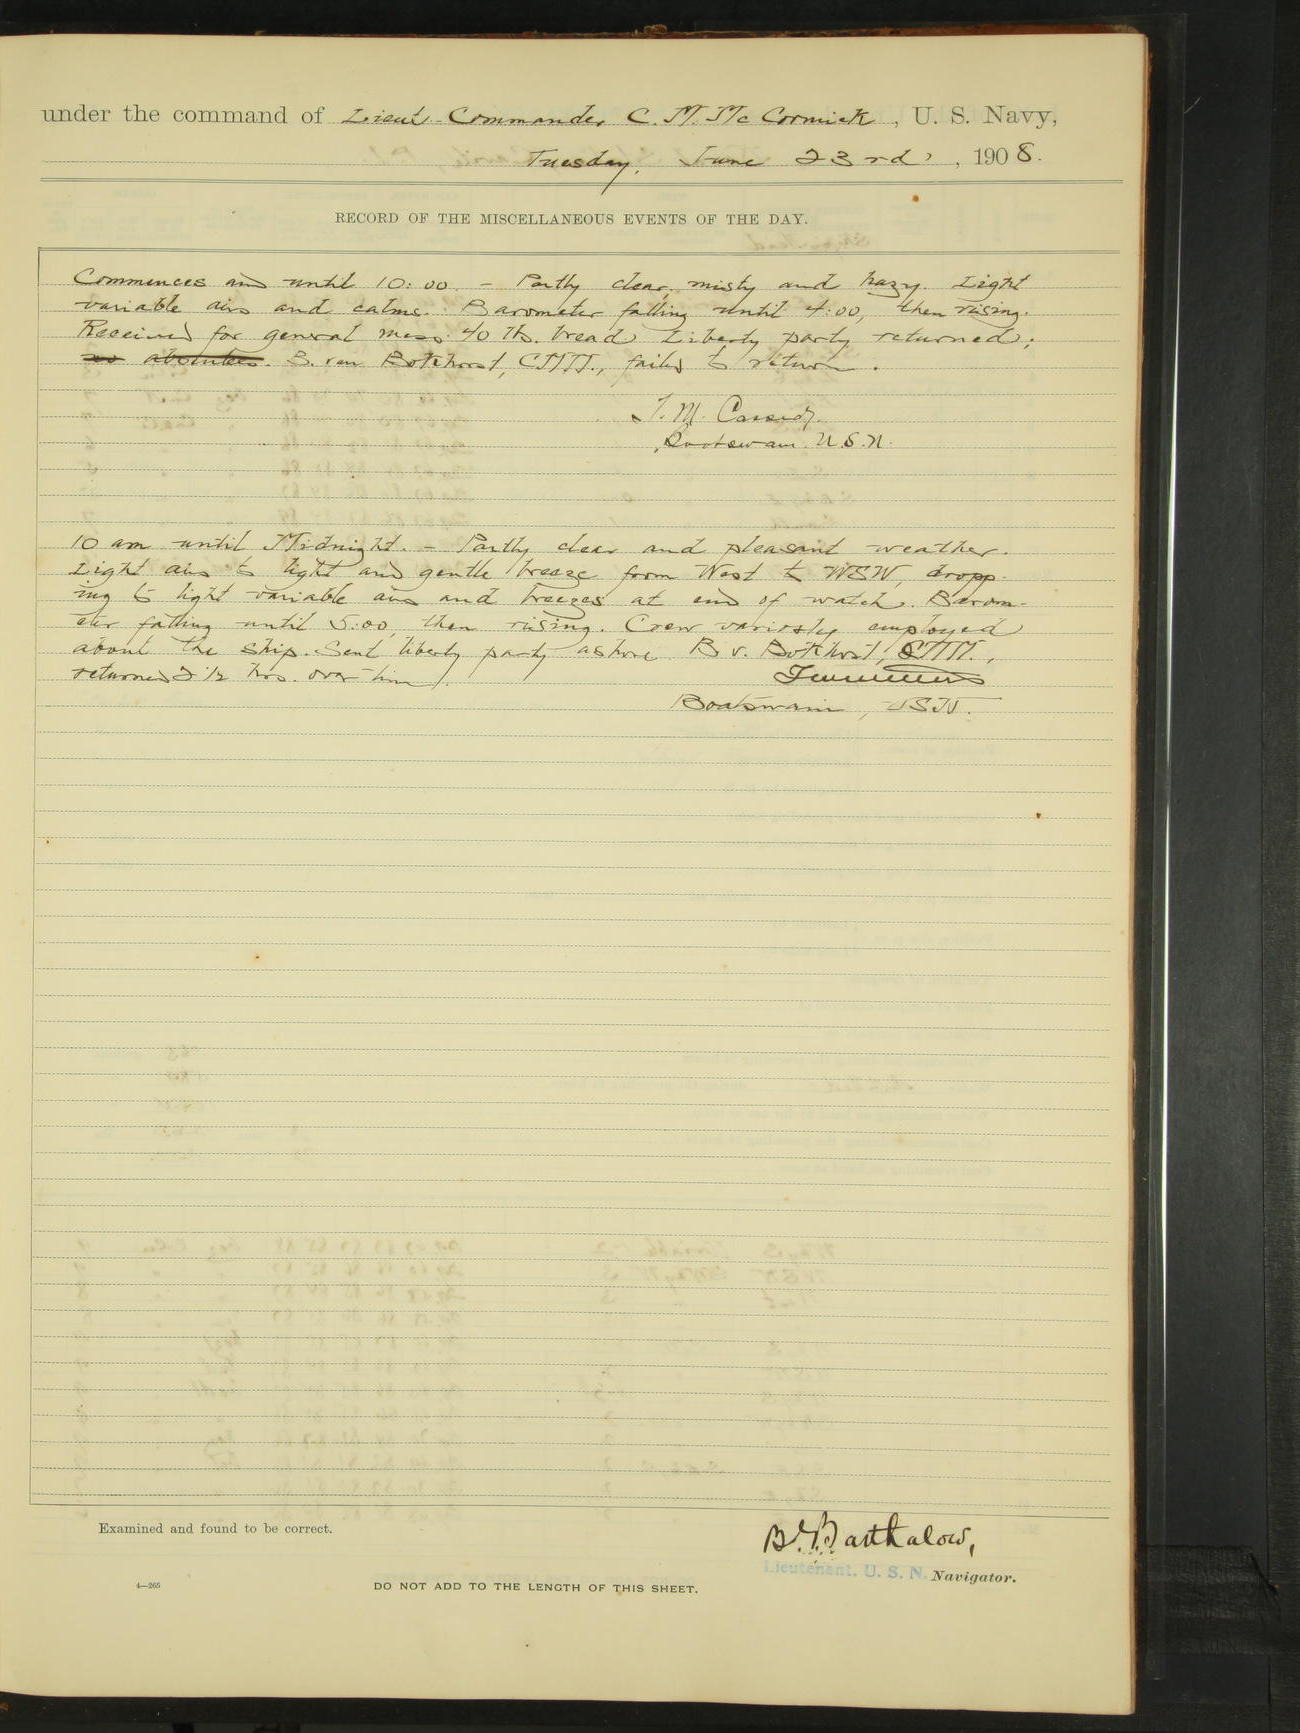 under the command of Lieut-Commander C. M. McCormick, U. S. Navy,
Tuesday, June 23rd, 1908.
RECORD OF THE MISCELLANEOUS EVENTS OF THE DAY.
Commences and until 10:00. - Partly clear, misty and hazy. Light
variable airs and calms. Barometer falling until 4:00, then rising.
Received for general mess 40 lbs. bread. Liberty party returned;
no absentees. B. van Botkhorst, CMM., failed to return.
T. M. Cassidy.
Boatswain. U.S.N.
10 am until Midnight. - Partly clear and pleasant weather.
Light airs to light and gentle breeze from West to WSW, dropp-
ing to light variable airs and breezes at end of watch. Barom-
eter falling until 5:00, then rising. Crew variosly employed
about the ship. Sent liberty party ashore. B v. Botkhorst, CMM.,
returned 2 1/2 hrs. over time.
Boatswain, USN.
Examined and found to be correct.
Barthalow,
Lieutenant. U. S. N. Navigator.
4—265
DO NOT ADD TO THE LENGTH OF THIS SHEET.